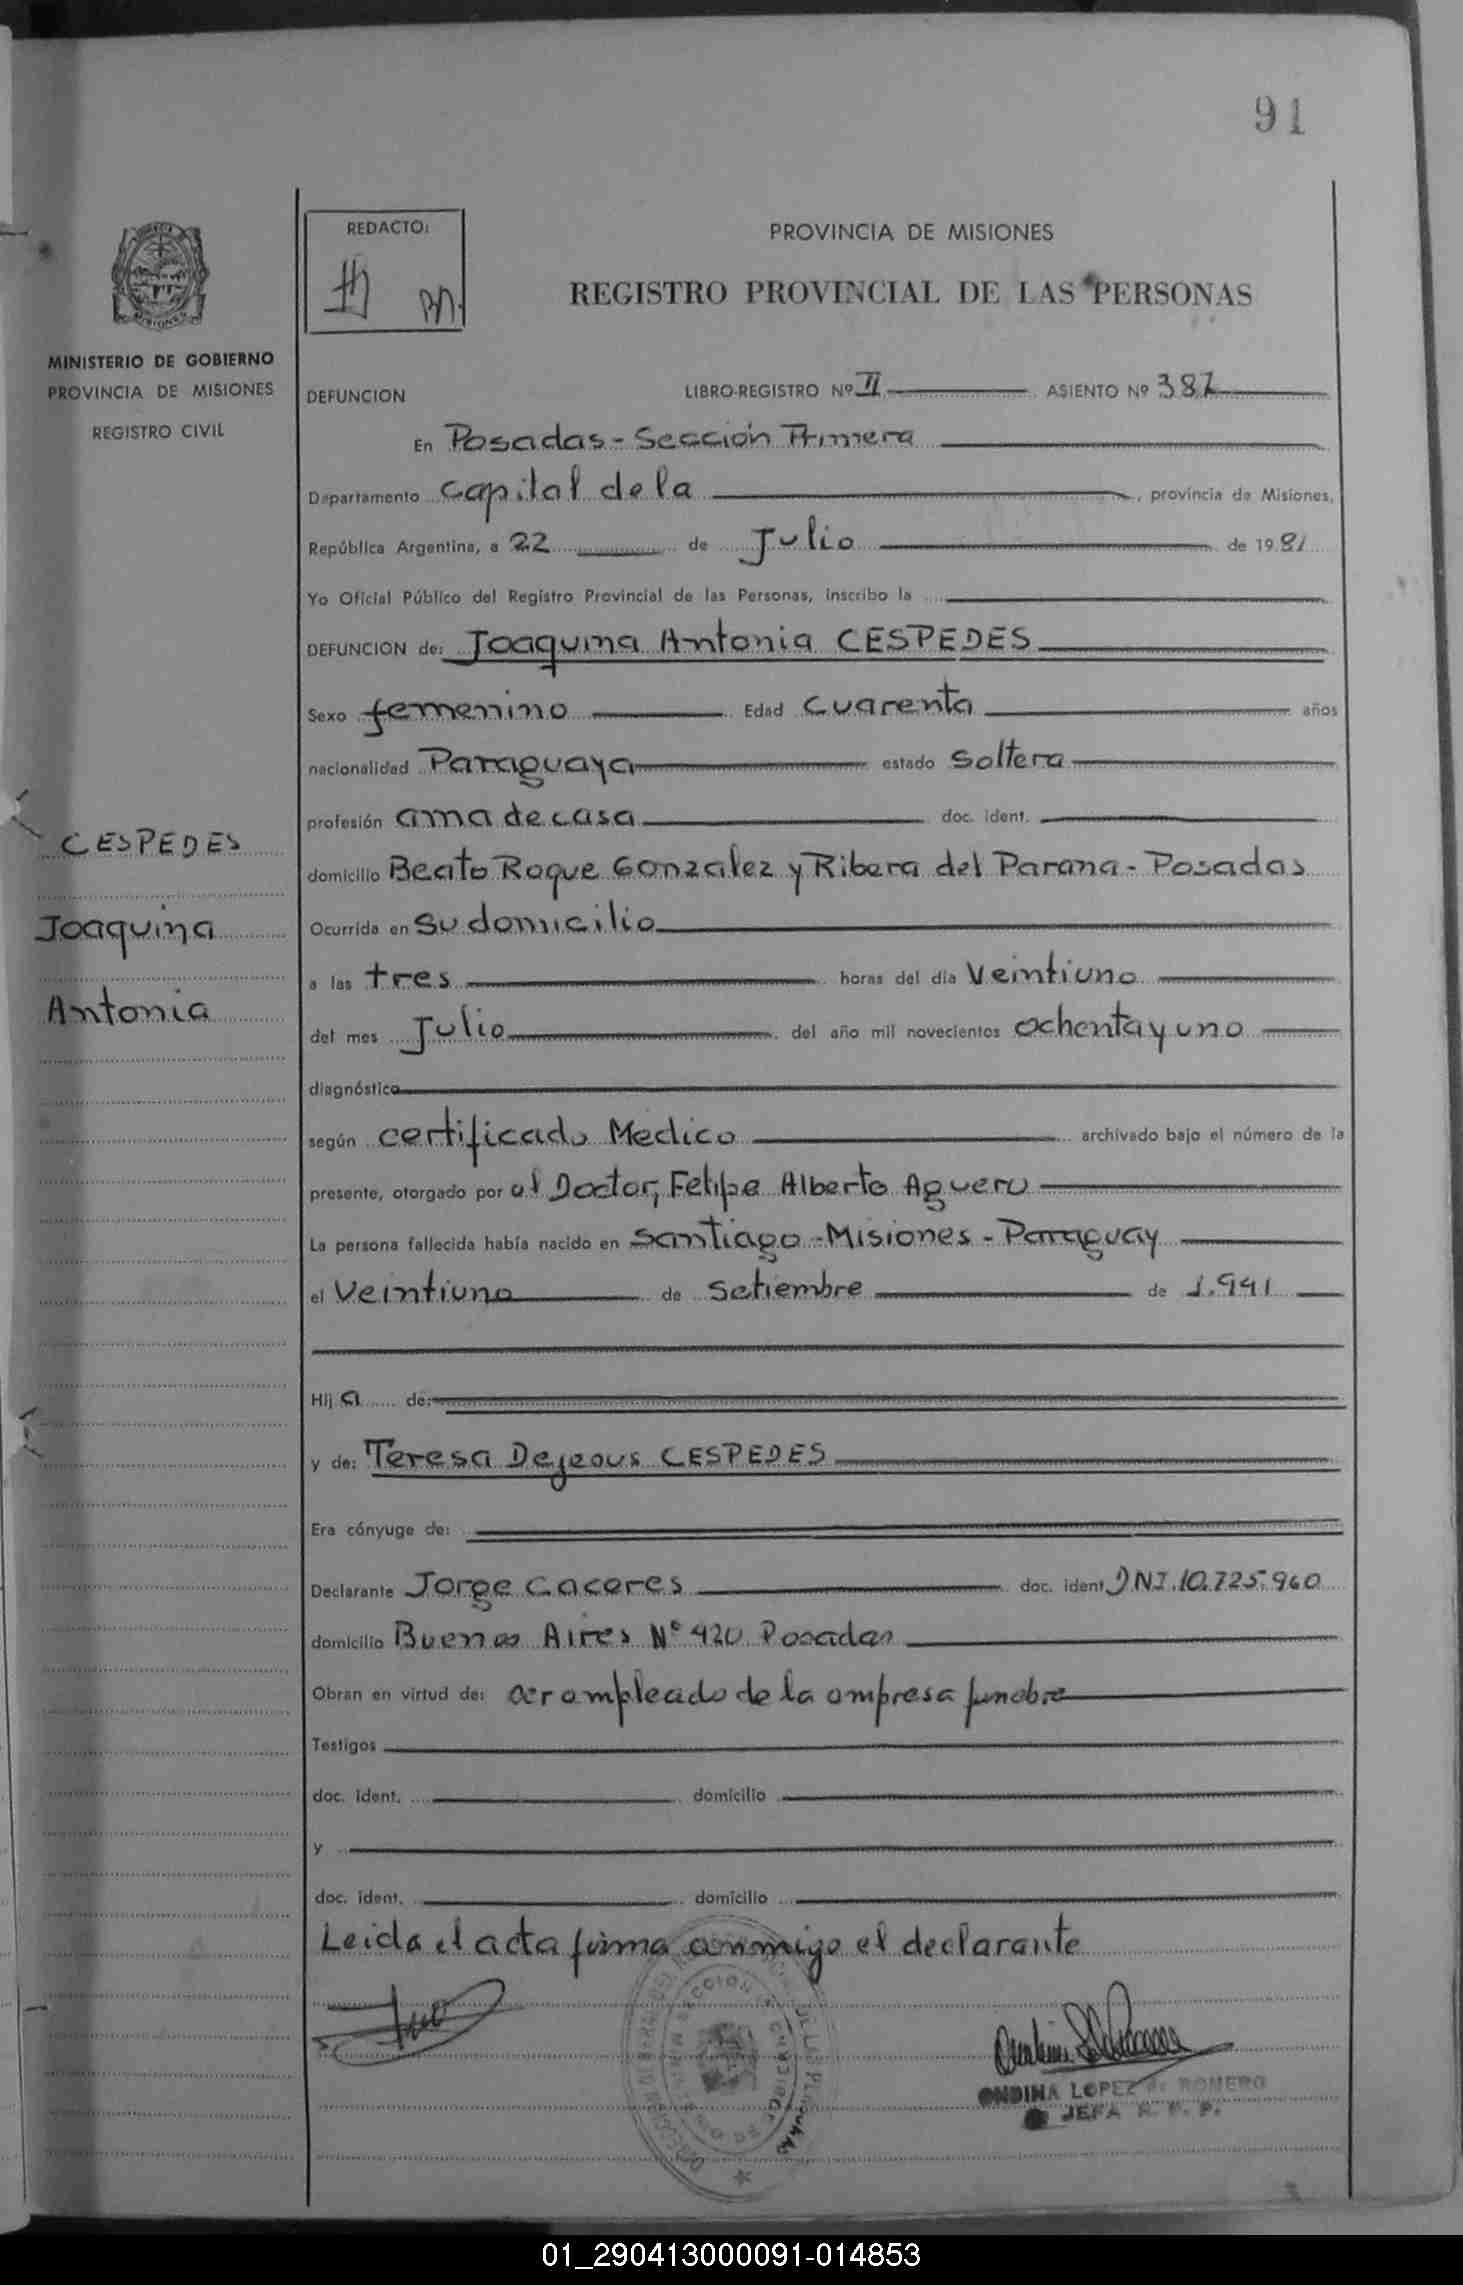 91
REDACTO:
PROVINCIA DE MISIONES
REGISTRO PROVINCIAL DE LAS PERSONAS
MINISTERIO DE GOBIERNO
PROVINCIA DE MISIONES
REGISTRO CIVIL
DEFUNCION LIBRO-REGISTRO Nº II ASIENTO Nº 387
En Posadas - Sección Primera
Departamento Capital de la, provincia de Misiones,
República Argentina, a 22 de Julio de 1981
Yo Oficial Público del Registro Provincial de las Personas, inscribo la
DEFUNCION de: Joaquina Antonia CESPEDES
Sexo femenino Edad cuarenta años
nacionalidad Paraguaya estado Soltera
profesión ama de casa doc. ident.
CESPEDES
Joaquina
Antonia
domicilio Beato Roque Gonzalez y Ribera del Parana - Posadas
Ocurrida en su domicilio
a las tres horas del día Veintiuno
del mes Julio del año mil novecientos ochenta y uno
diagnóstico
según certificado Medico archivado bajo el número de la
presente, otorgado por el Doctor, Felipe Alberto Aguero
La persona fallecida había nacido en Santiago - Misiones - Paraguay
el Veintiuno de Setiembre de 1.941
Hij a de:
y de: Teresa Dejeous CESPEDES
Era cónyuge de:
Declarante Jorge Caceres doc. ident DNI. 10.725.960
domicilio Buenos Aires Nº 420 Posadas
Obran en virtud de: ser empleado de la empresa funebre
Testigos
doc. ident. domicilio
y
doc. ident. domicilio
Leida el acta firma conmigo el declarante
ONDINA LOPEZ ROMERO
JEFA R. P. P.
01_290413000091-014853